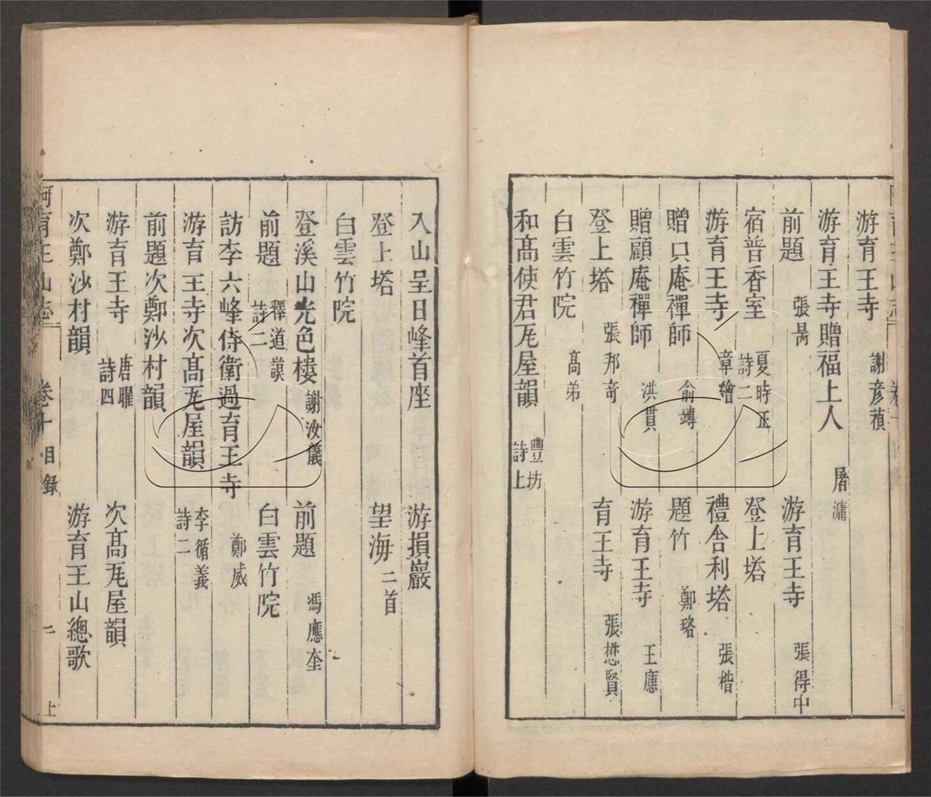 游育王寺 謝彥禎
游育王寺贈福上人 屠滽
前題 張昺 游育王寺 張得中
宿普香室 夏時正詩二 登上塔
游育王寺 章繪 禮舍利塔 張楷
贈只庵禪師 俞竱 題竹 鄭珞
贈顧庵禪師 洪貫 游育王寺 王應
登上塔 張邦奇 育王寺 張懋賢
白雲竹院 高弟
和髙使君𤬪屋韻 豐坊詩上
入山呈日峰首座 游損巖
登上塔 望海二首
白雲竹院
登溪山光色樓 謝汝儀 前題 馮應奎
前題 釋道詧詩二 白雲竹院
訪李六峰侍衛過育王寺 鄭威
游育王寺次髙屋韻 李循義詩二
前題次鄭沙村韻
游育王寺 唐曜詩四 次髙屋韻
次鄭沙村韻 游育王山總歌
阿育王山志 卷十目錄 二 上